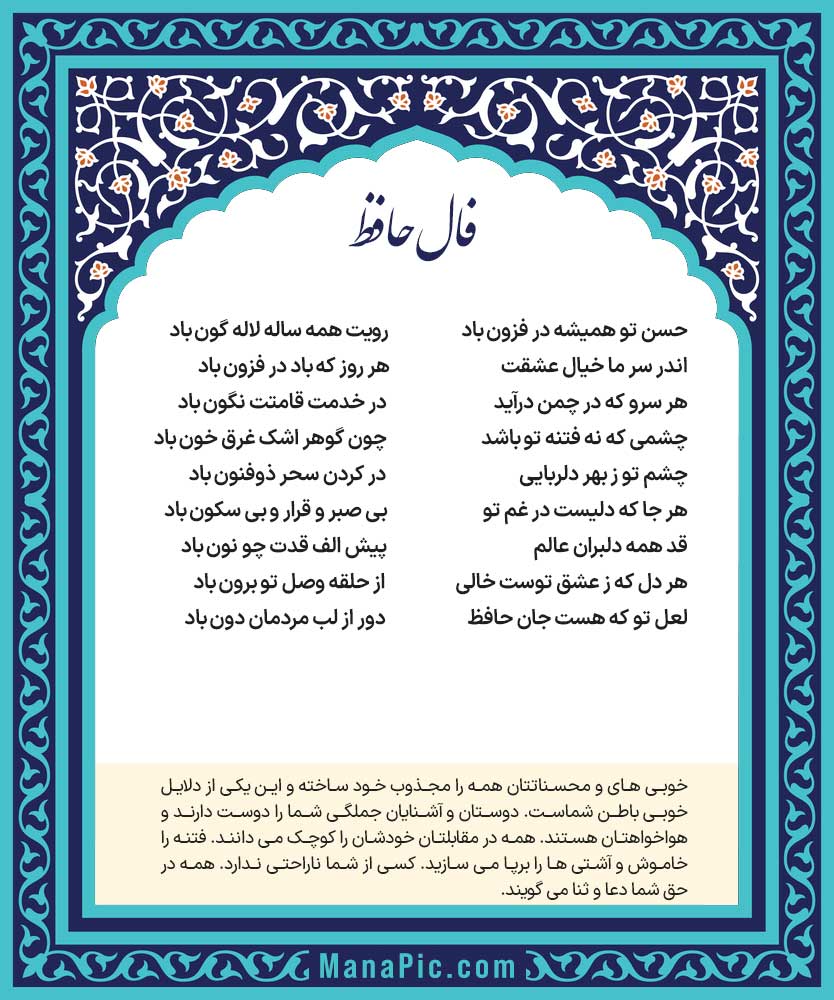 فال حافظ
حسن تو همیشه در فزون باد رویت همه ساله لاله گون باد
اندر سر ما خیال عشقت هر روز که باد در فزون باد
هر سرو که در چمن درآید در خدمت قامتت نگون باد
چشمی که نه فتنه تو باشد چون گوهر اشک غرق خون باد
چشم تو ز بهر دلربایی در کردن سحر ذوفنون باد
هر جا که دلیست در غم تو بی صبر و قرار و بی سکون باد
قد همه دلبران عالم پیش الف قدت چو نون باد
هر دل که ز عشق توست خالی از حلقه وصل تو برون باد
لعل تو که هست جان حافظ دور از لب مردمان دون باد
خوبی های و محسناتتان همه را مجذوب خود ساخته و این یکی از دلایل
خوبی باطن شماست. دوستان و آشنایان جملگی شما را دوست دارند و
هواخواهتان هستند. همه در مقابلتان خودشان را کوچک می دانند. فتنه را
خاموش و آشتی ها را برپا می سازید. کسی از شما ناراحتی ندارد. همه در
حق شما دعا و ثنا می گویند.
ManaPic.com